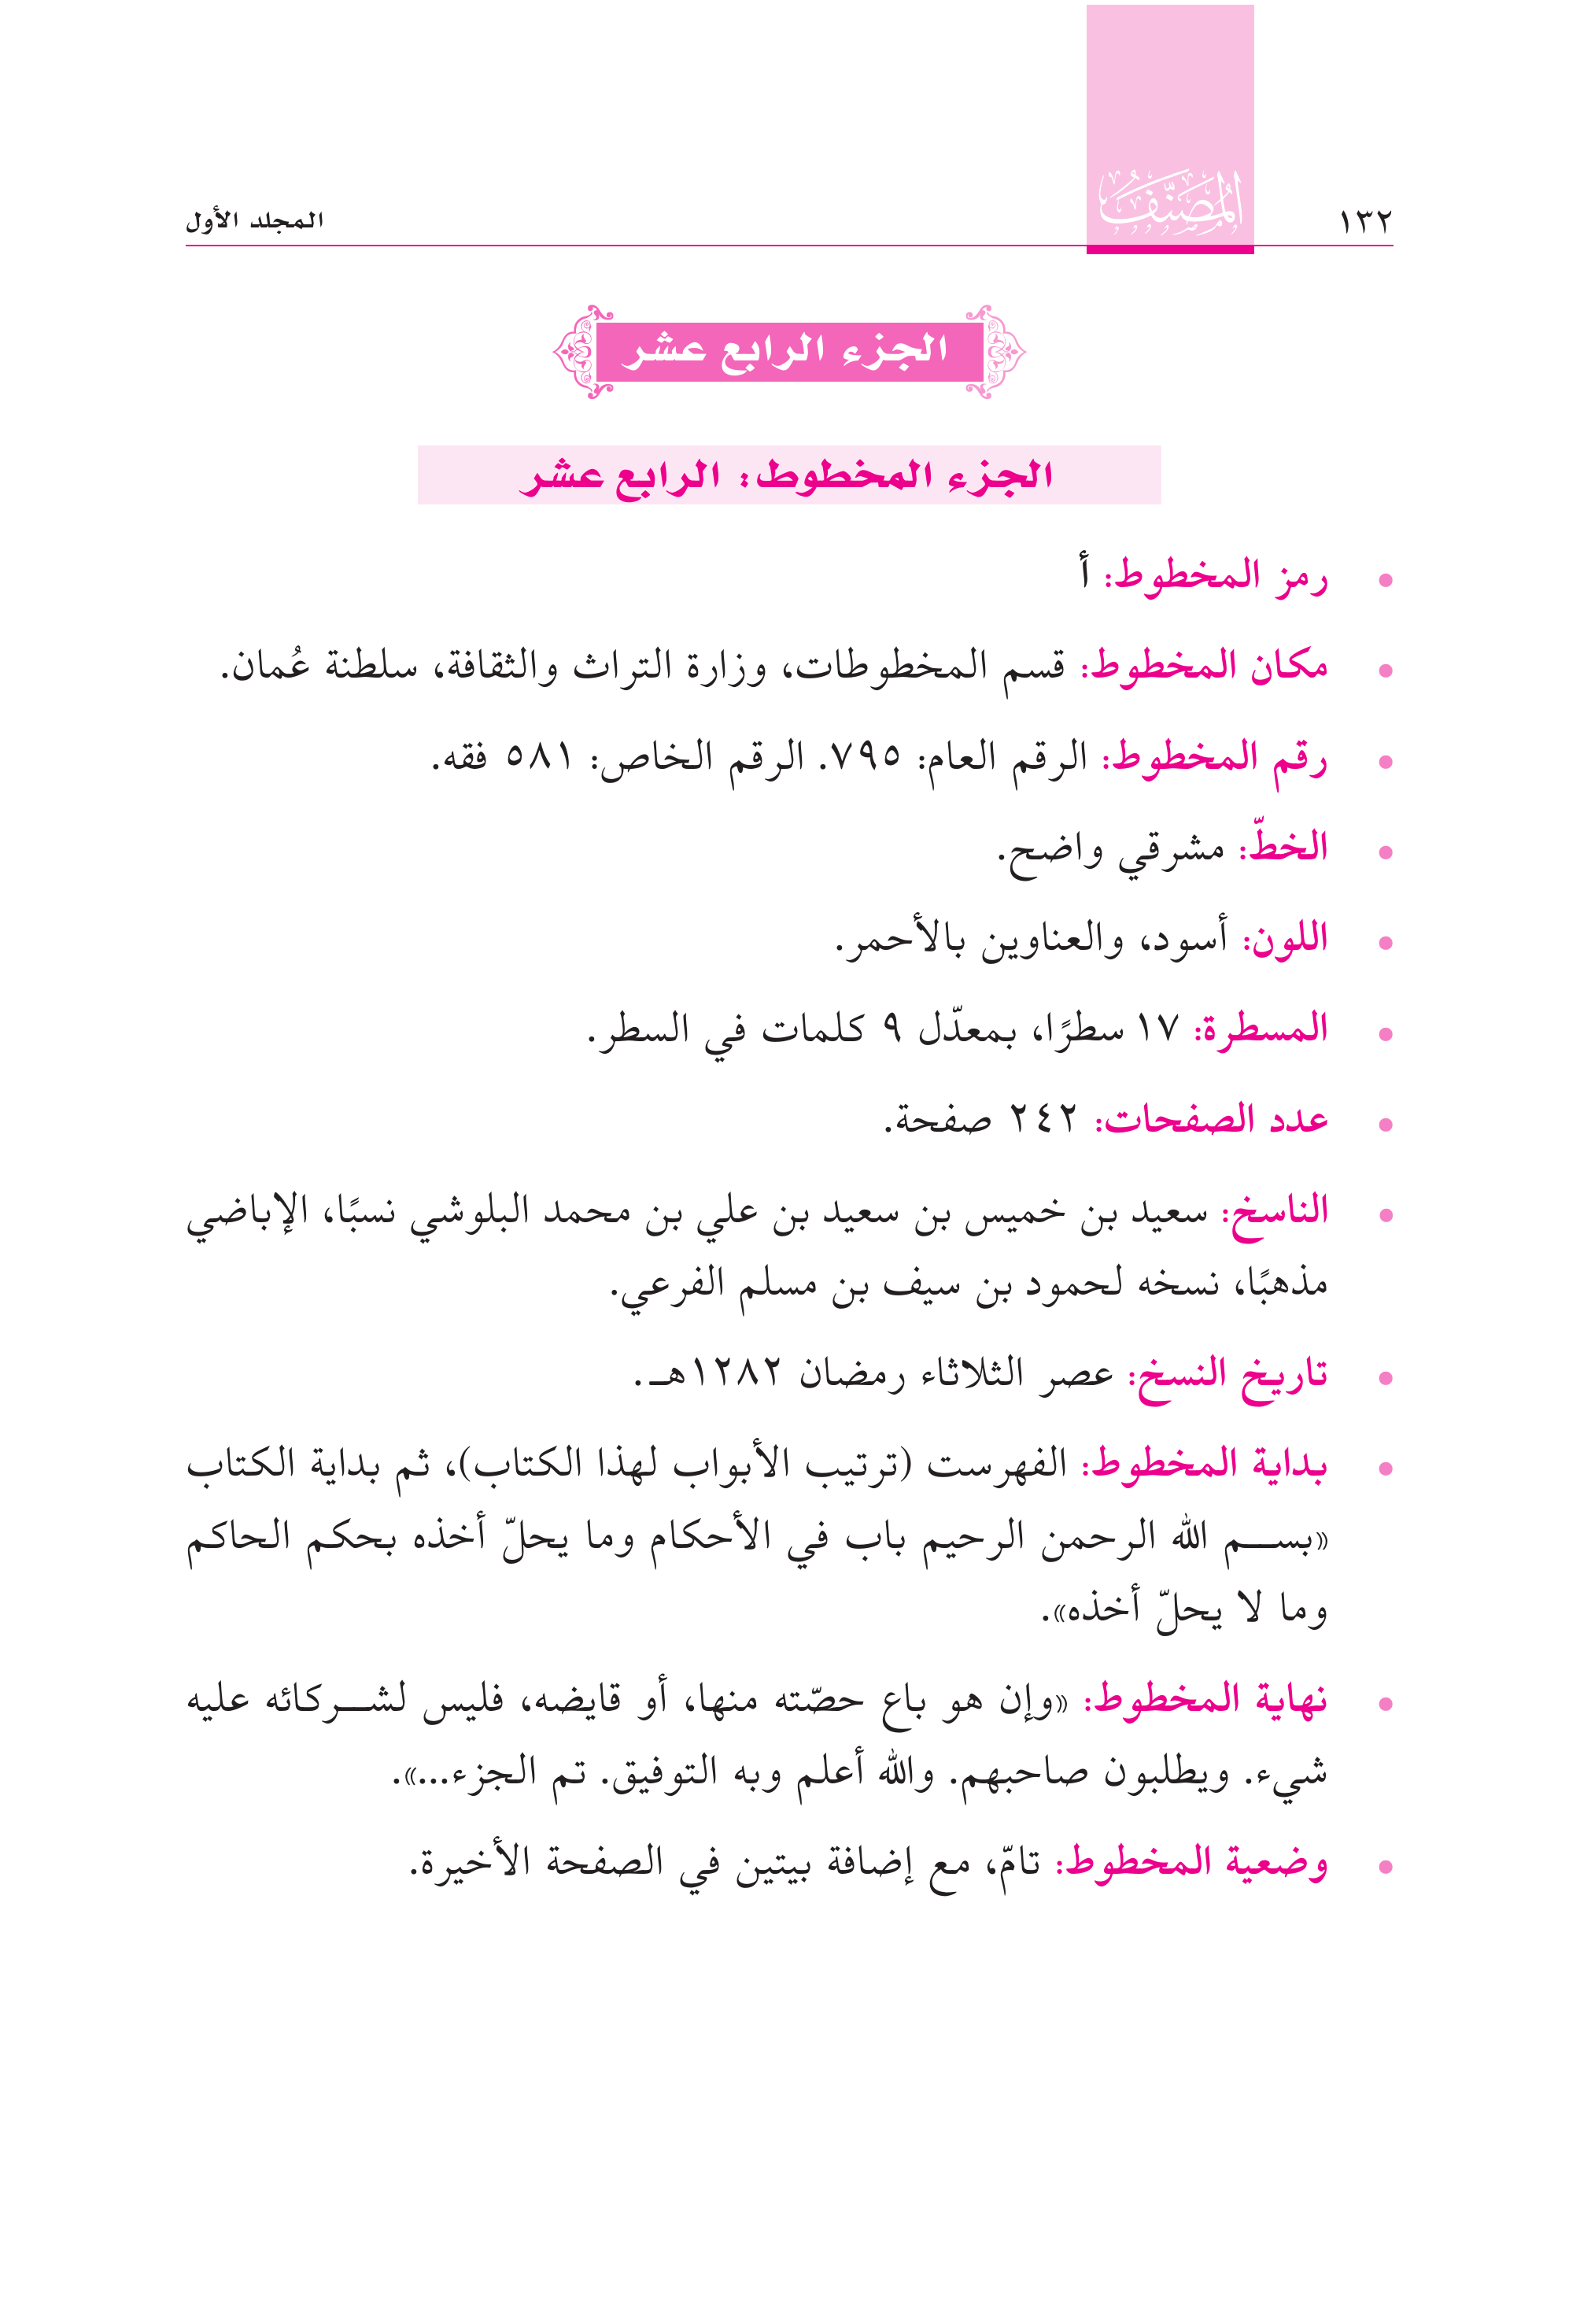 ١٣٢
المُصَنَّفُ
المجلد الأول
الجزء الرابع عشر
الجزء المخطوط: الرابع عشر
• رمز المخطوط: أ
• مكان المخطوط: قسم المخطوطات، وزارة التراث والثقافة، سلطنة عُمان.
• رقم المخطوط: الرقم العام: ٧٩٥. الرقم الخاص: ٥٨١ فقه.
• الخطّ: مشرقي واضح.
• اللون: أسود، والعناوين بالأحمر.
• المسطرة: ١٧ سطرًا، بمعدّل ٩ كلمات في السطر.
• عدد الصفحات: ٢٤٢ صفحة.
• الناسخ: سعيد بن خميس بن سعيد بن علي بن محمد البلوشي نسبًا، الإباضي
مذهبًا، نسخه لحمود بن سيف بن مسلم الفرعي.
• تاريخ النسخ: عصر الثلاثاء رمضان ١٢٨٢هـ.
• بداية المخطوط: الفهرست (ترتيب الأبواب لهذا الكتاب)، ثم بداية الكتاب
«بسم الله الرحمن الرحيم باب في الأحكام وما يحلّ أخذه بحكم الحاكم
وما لا يحلّ أخذه».
• نهاية المخطوط: «وإن هو باع حصّته منها، أو قايضه، فليس لشركائه عليه
شيء. ويطلبون صاحبهم. والله أعلم وبه التوفيق. تم الجزء...».
• وضعية المخطوط: تامّ، مع إضافة بيتين في الصفحة الأخيرة.